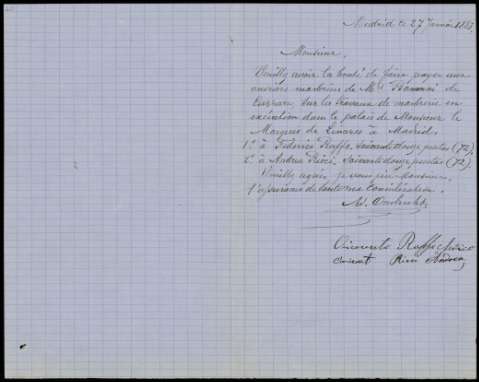 Madrid le 27 Janvier 188
Monsieur,
Veuillez avoir la bonté de faire payer aux
ouvriers marbriers de Mr
sur les travaux de marbrerie en
exécution dans le palais de Monsieur le
Marquis de Linares à Madrid
1º à Federico Raffo, soixante douze pesetas (72).
2º à Andrea Ricci, soixante douze pesetas (72).
Veuillez agréer, je vous prie Monsieur,
l'expression de toute ma considération.
Raffo
Ricci Andrea